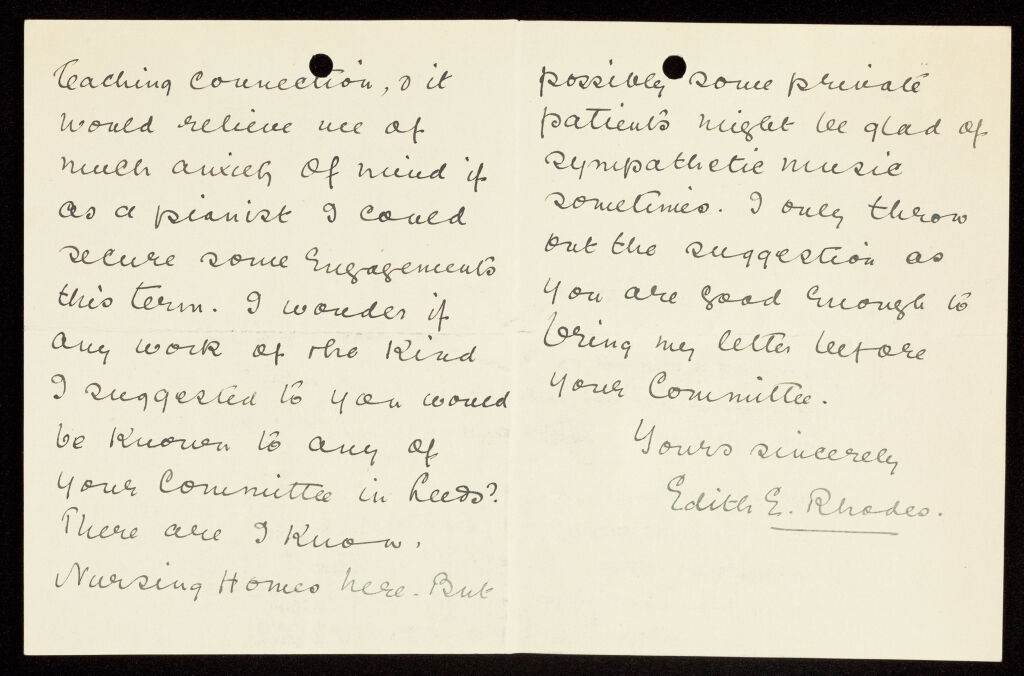 teaching connection, & it
would relieve me of
much anxiety of mind if
as a pianist I could
secure some Engagements
this term. I wonder if
any work of the Kind
I suggested to you would
be Known to any of
your Committee in Leeds?
There are I Know,
Nursing Homes here. But
possibly some private
patients might be glad of
sympathetic music
sometimes. I only throw
out the suggestion as
you are good Enough to
bring my letter before
your Committee.
Yours sincerely
Edith E. Rhodes.